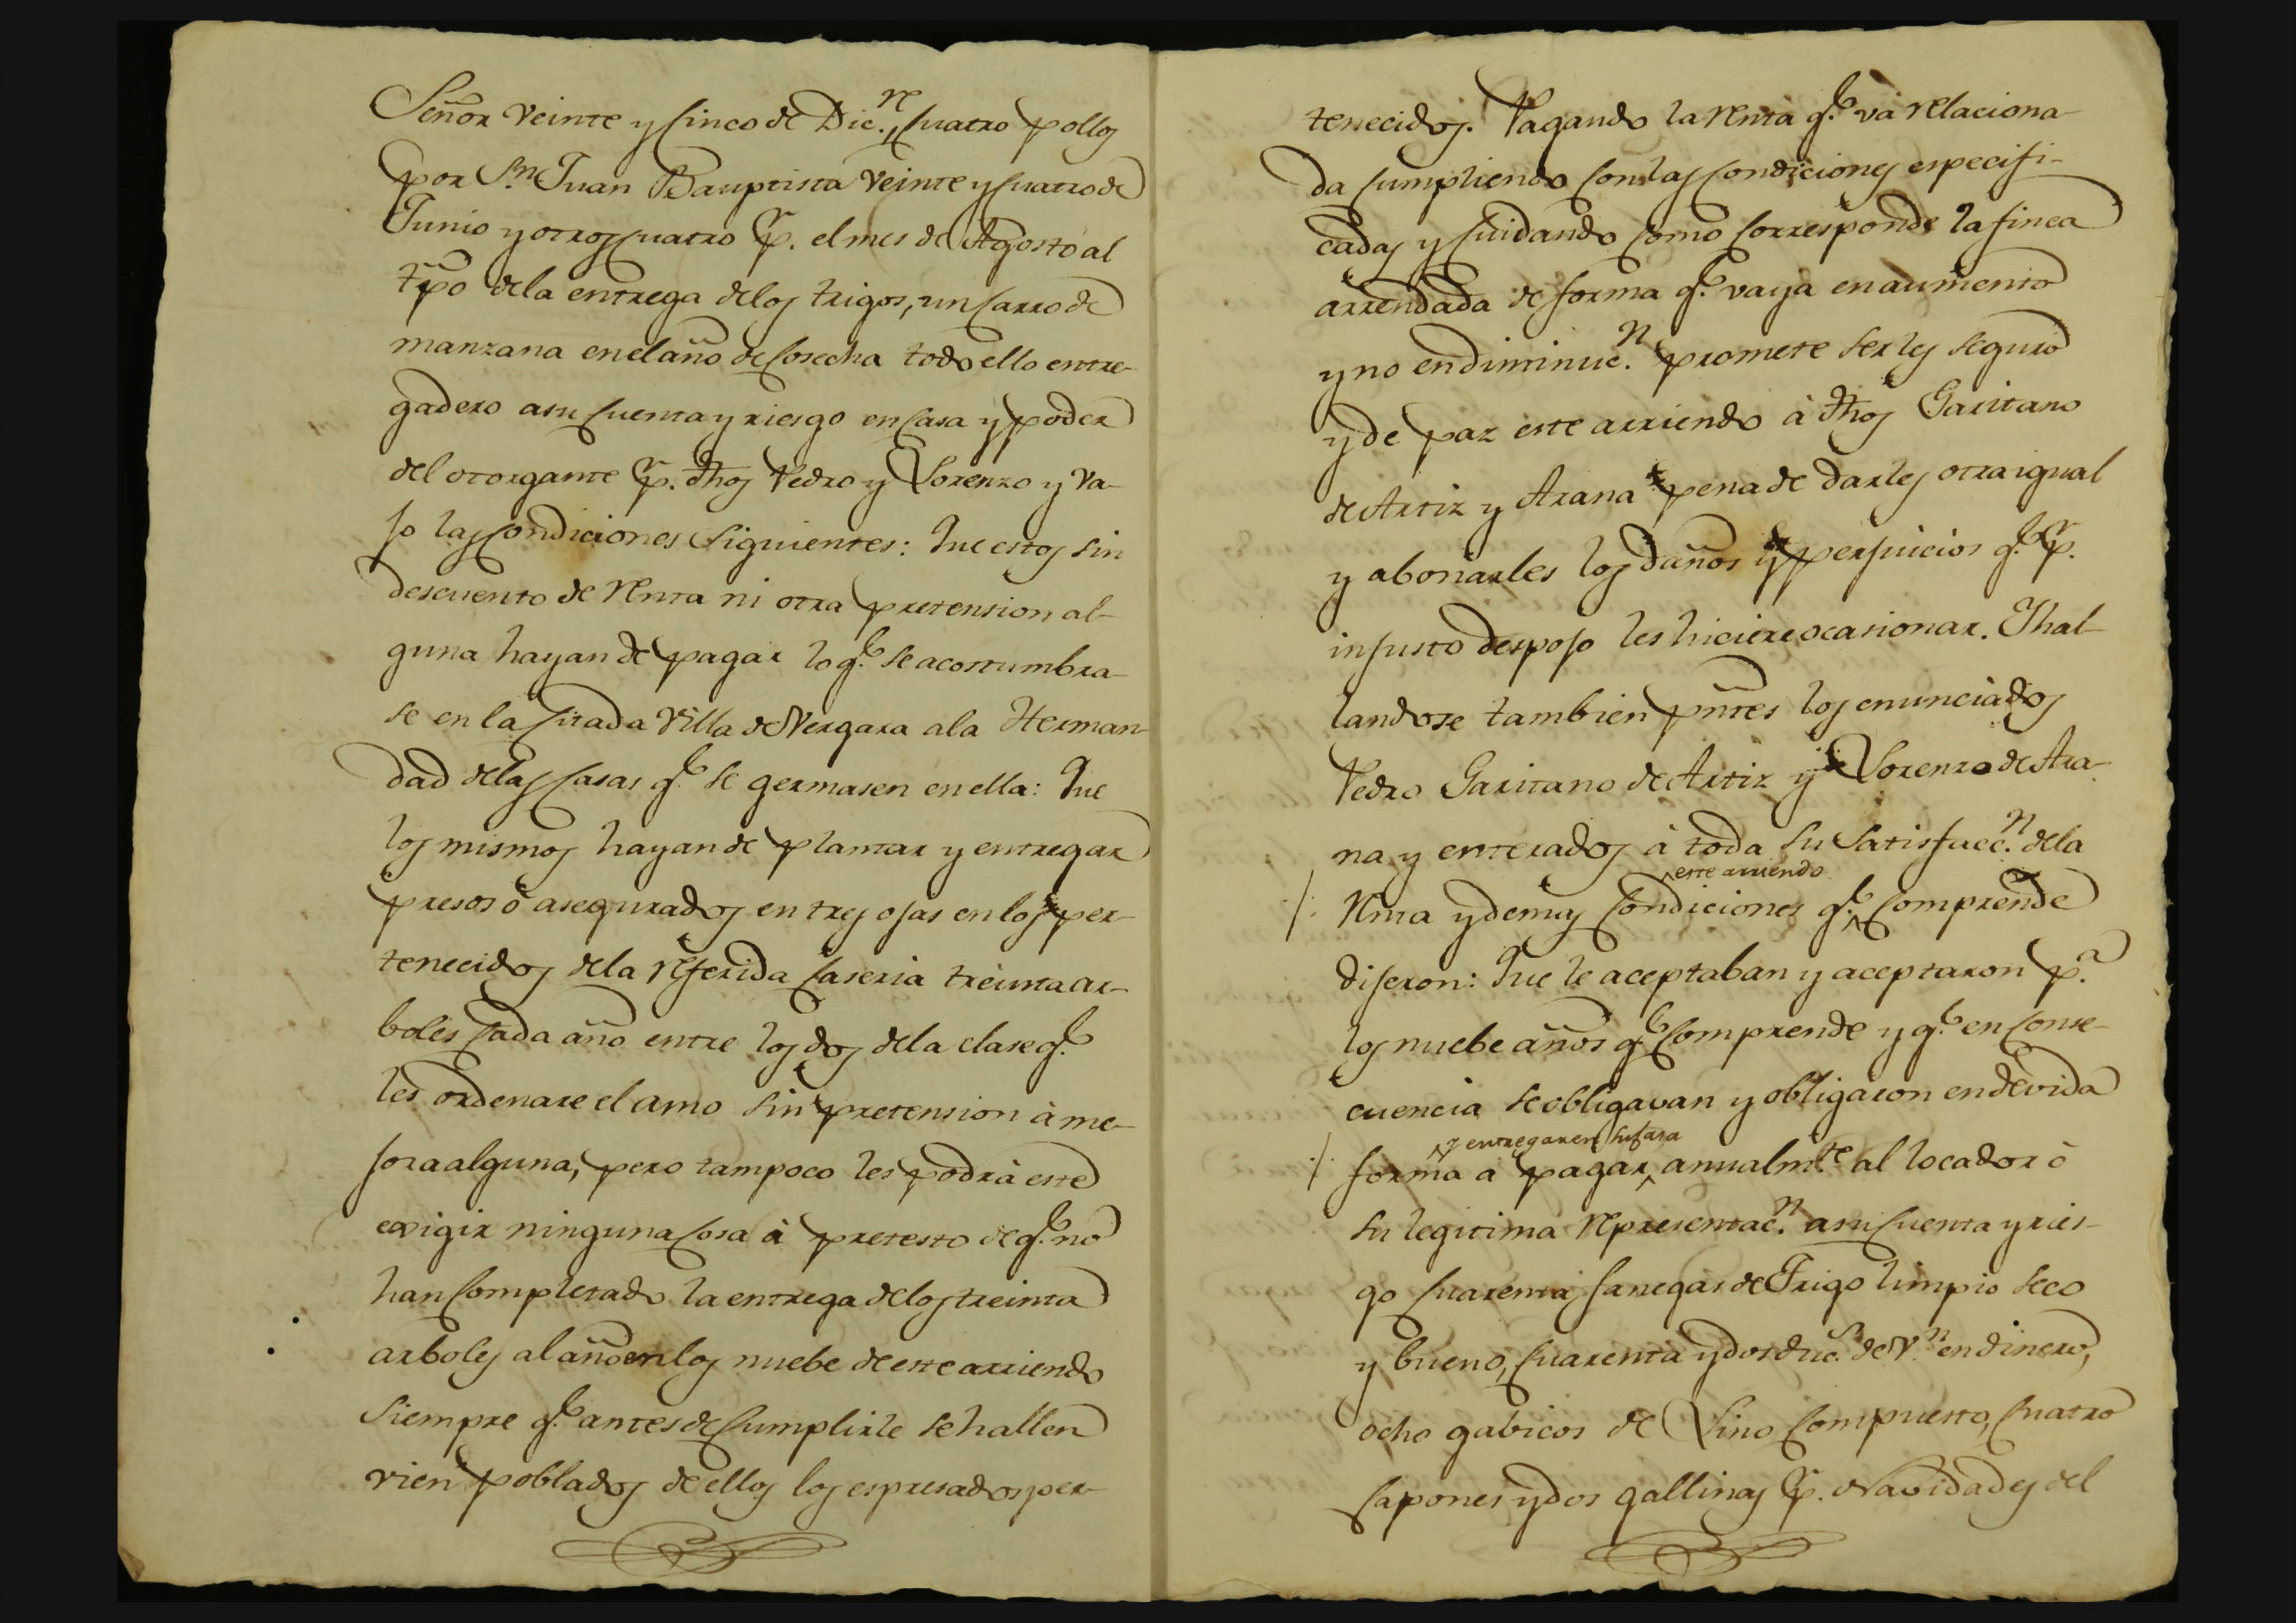 Señor veinte y Cinco de Dic.re, Cuatro pollos
por S.n Juan Bauptista veinte y cuatro de
Junio y otros cuatro p.r el mes de Agosto al
tpo de la entrega de los trigos, un Carro de
manzana en el año de Cosecha todo ello entre-
gadero a su Cuenta y riesgo en Casa y poder
del otorgante p.r dhos Pedro y Lorenzo y va-
jo las Condiciones siguientes: Que estos sin
descuento de renta ni otra pretension al-
guna hayan de pagar lo q.e se acostumbra-
se en la Citada Villa de Vergara a la Herman-
dad de las Casas q.e se germasen en ella: Que
los mismos hayan de plantar y entregar
presos ó asegurados en tres ojas en los per-
tenecidos de la referida Caseria treinta ar-
boles Cada año entre los dos de la clase q.e
les ordenare el amo sin pretension à me-
jora alguna, pero tampoco les podrà este
exigir ninguna Cosa à pretesto de q.e no
han Completado la entrega de los treinta
arboles al año en los nuebe de este arriendo
siempre q.e antes de Cumplirle se hallen
vien poblados de ellos los espresados per-
tenecidos. Pagando la renta q.e và relaciona-
da Cumpliendo Con las Condiciones especifi-
cadas y Cuidando Como Corresponde la finca
arrendada de forma q.e vaya en aumento
y no en diminuc.n promete serles seguro
y de paz este arriendo à dhos Garitano
de Artiz y Arana pena de darles otra igual
y abonarles los daños y perjuicios q.e p.r
injusto despojo les hiciere ocasionar. Y hal-
landose tambien pntes los enunciados
Pedro Garitano de Artiz y Lorenzo de Ara-
na y enterados à toda su Satisfacc.n de la
este arriendo
renta y demas Condiciones q.e Comprende
dijeron: Que le aceptaban y aceptaron p.a
los nuebe años q.e Comprende y q.e en Conse-
cuencia se obligavan y obligaron en devida
y entregar en su Casa
forma a pagar anualm.te al locador ò
su legitima representac.n a su Cuenta y ries-
go Cuarenta fanegas de Trigo limpio seco
y bueno, Cuarenta y dos duc.s de V.n en dinero,
ocho gabicos de Lino Compuesto, Cuatro
Capones y dos gallinas p.r Navidades del